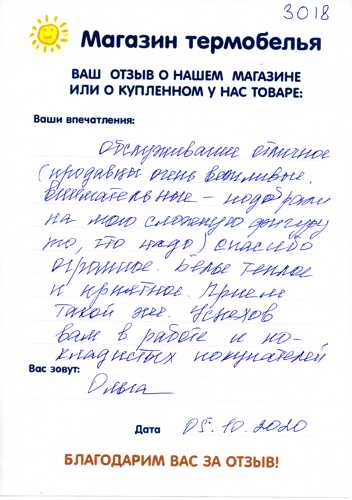 3018
Магазин термобелья
ВАШ ОТЗЫВ О НАШЕМ МАГАЗИНЕ
ИЛИ О КУПЛЕННОМ У НАС ТОВАРЕ:
Ваши впечатления:
Обслуживание отличное
(продавцы очень вежливые.
Внимательные – подобрали
на мою сложную фигуру
то, что надо) спасибо
огромное. Белье теплое
и приятное. Прием
такой же. Успехов
вам в работе и по-
кладистых покупателей
Вас зовут:
Ольга
Дата 05.10.2020
БЛАГОДАРИМ ВАС ЗА ОТЗЫВ!